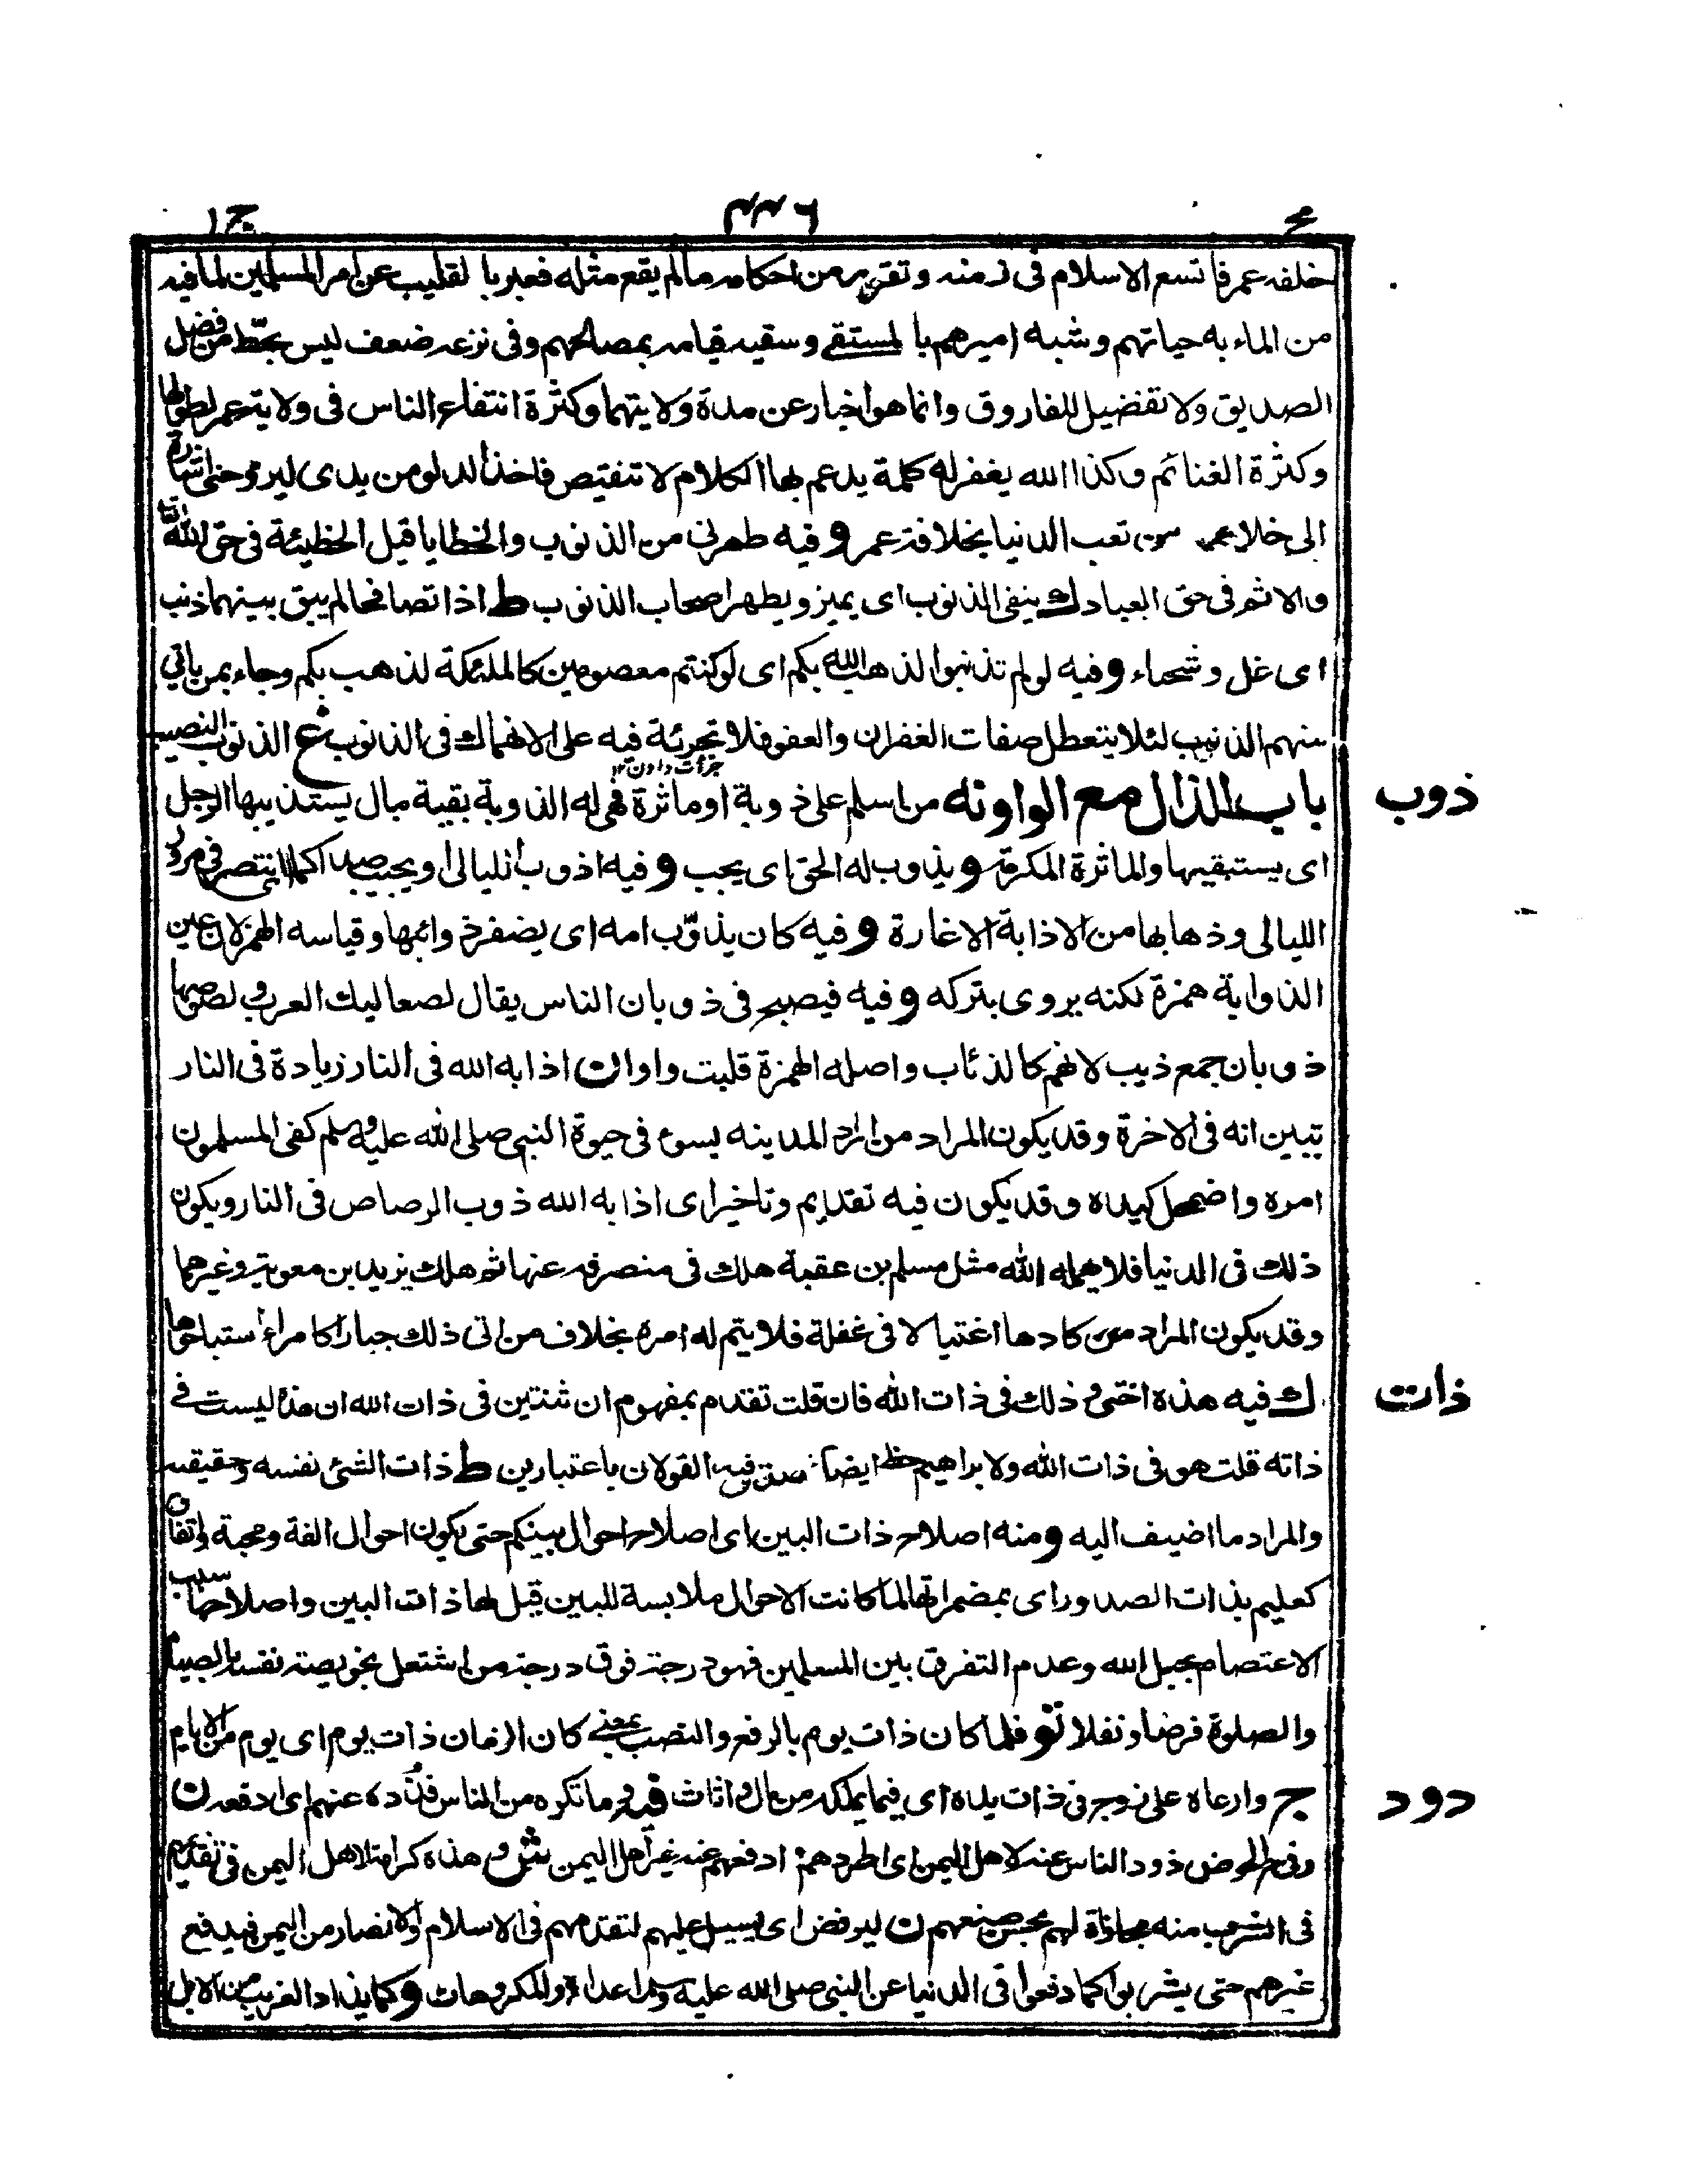 ج ١
خلفه عمر فاتسع الاسلام فى زمنه وتقرر من احكامه مالم يقع مثله فعبر بالقليب عن امر المسلمين لما فيه
من الماء به حياتهم وشبه اميرهم بالمستقے وسقيه قيامه بمصالحهم وفى نزعه ضعف ليس بحطّ من فضيل
الصديق ولا تفضيل للفاروق وانما هو اخبار عن مدة ولايتهما وكثرة انتفاع الناس فى ولاية عمر لطولها
وكثرة الغنائم وكذا الله يغفر له كلمة يدعم بها الكلام لا تنقيص فاخذ الدلو من يدى ليروحنى اشارة
الى من تعب الدنيا بخلافة عمر وفيه طهرنى من الذنوب والخطايا قيل الخطيئة فى حق الله
والاثم فى حق العباد ك ينفى الذنوب اى يميز ويطهر اصحاب الذنوب ط اذا تصافحا لم يبق بينهما ذنب
اى غل وشحناء وفيه لو لم تذنبوا لذهب الله بكم اى لو كنتم معصومين كالملئكة لذهب بكم وجاء بمن ياتي
منهم الذنب لئلا يتعطل صفات الغفران والعفو فلا تجرئة فيه على الانهماك فى الذنوب غ الذنوب النصيب
جرأت دادن ١٢
ذوب
باب الذال مع الواو نه من اسلم على ذوبة او ماثرة فهى له الذوبة بقية مال يستذيبها الرجل
اى يستبقيها والماثرة المكرمة ويذوب له الحق اى يجب وفيه اذوب الليالى او يجيب صداكما اى انتصر فى مرور
الليالى وذهابها من الاذابة الاغارة وفيه كان يذوّب امه اى يضفر ذوائبها وقياسه الهمز لان عين
الذوابة همزة لكنه يروى بتركه وفيه فيصبح فى ذوبان الناس يقال لصعاليك العرب ولصوصها
ذوبان جمع ذيب لانهم كالذئاب واصله الهمزة قلبت واوا ن اذابه الله فى النار زيادة فى النار
تبين انه فى الاخرة وقد يكون المراد من اراد المدينه بسوء فى حيوة النبى صلى الله عليه وسلم كفى المسلمون
امره واضمحل كيده وقد يكون فيه تقديم وتاخير اى اذابه الله ذوب الرصاص فى النار ويكون
ذلك فى الدنيا فلا يمهله الله مثل مسلم بن عقبة هلك فى منصرفه عنها ثم هلك يزيد بن معوية وغيرهما
وقد يكون المراد من كادها اغتيالا فى غفلة فلا يتم له امره بخلاف من اتى ذلك جبارا كامراء استباحوها
ذات
ك فيه هذه اختى وذلك فى ذات الله فان قلت تقدم بمفهوم ان ثنتين فى ذات الله ان هذه ليست فے
ذاته قلت هو فى ذات الله ولابراهيم حظ ايضا القولان باعتبارين ط ذات الشئ نفسه وحقيقته
والمراد ما اضيف اليه ومنه اصلاح ذات البين اى اصلاح احوال بينكم حتى يكون احوال الفة ومحبة واتفاق
كعليم بذات الصدور اى بمضمراتها لما كانت الاحوال ملابسة للبين قيل لها ذات البين واصلاحها سبب
الاعتصام بحبل الله وعدم التفرق بين المسلمين فهو درجة فوق درجة من اشتغل بخويصة نفسه بالصيام
والصلوة فرضا ونفلا تو فلما كان ذات يوم بالرفع والنصب بمعنے كان الزمان ذات يوم اى يوم من الايام
دود
ج وارعاه على زوج فى ذات يده اى فيما يملكه من مال واثاث فيه وما تكره من الناس فذده عنهم اى ادفعه ن
وفى ح الحوض ذود الناس عنه لاهل اليمن اى اطردهم ادفعهم عنه غير اهل اليمن ش و هذه كرامة لاهل اليمن فى تقديم
فى الشرب منه مجازاة لهم بحسن صنيعهم ن ليرفض اى يسيل عليهم لتقدمهم فى الاسلام والانصار من اليمن فيدفع
غيرهم حتى يشربوا كما دفعوا فى الدنيا عن النبى صلى الله عليه وسلم اعداءه والمكروهات وكما يذاد الغريب من الابل